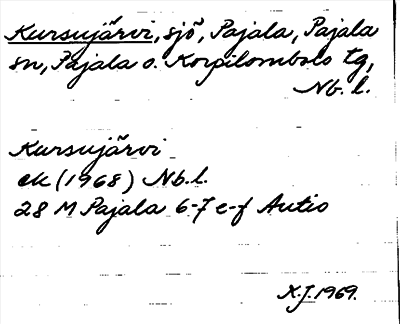 Kursujärvi, sjö, Pajala, Pajala
sn, Pajala o. Korpilombolo tg,
Nb. l.
Kursujärvi
ek (1968) Nb.l.
28 M Pajala 6-7 e-f Autio
K.J. 1969.